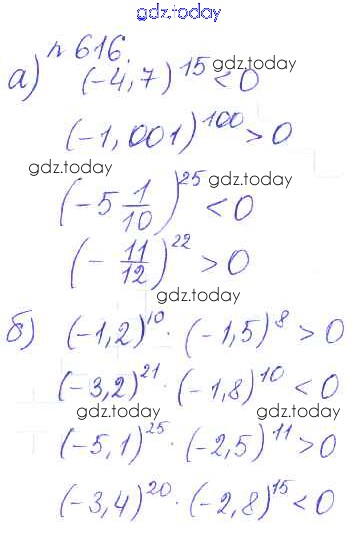 gdz.today
№ 616.
а) (-4,7)^15 < 0
gdz.today
(-1,001)^100 > 0
gdz.today
gdz.today
(-5 1/10)^25 < 0
gdz.today
(-11/12)^22 > 0
gdz.today
б) (-1,2)^10 · (-1,5)^8 > 0
gdz.today
(-3,2)^21 · (-1,8)^10 < 0
gdz.today gdz.today
(-5,1)^25 · (-2,5)^11 > 0
gdz.today
(-3,4)^20 · (-2,8)^15 < 0